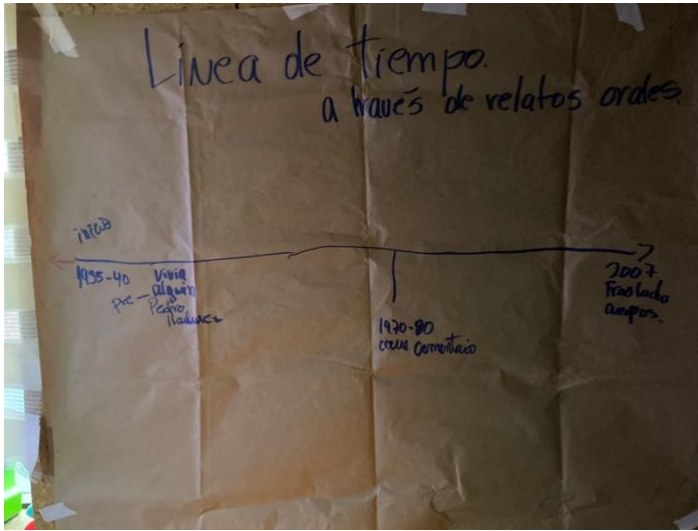 Linea de tiempo.
a través de relatos orales.
inicio
1935-40
Pre -
Vivia
alguien
Pedro
1970-80
cementerio
2007
Traslado
cuerpos.